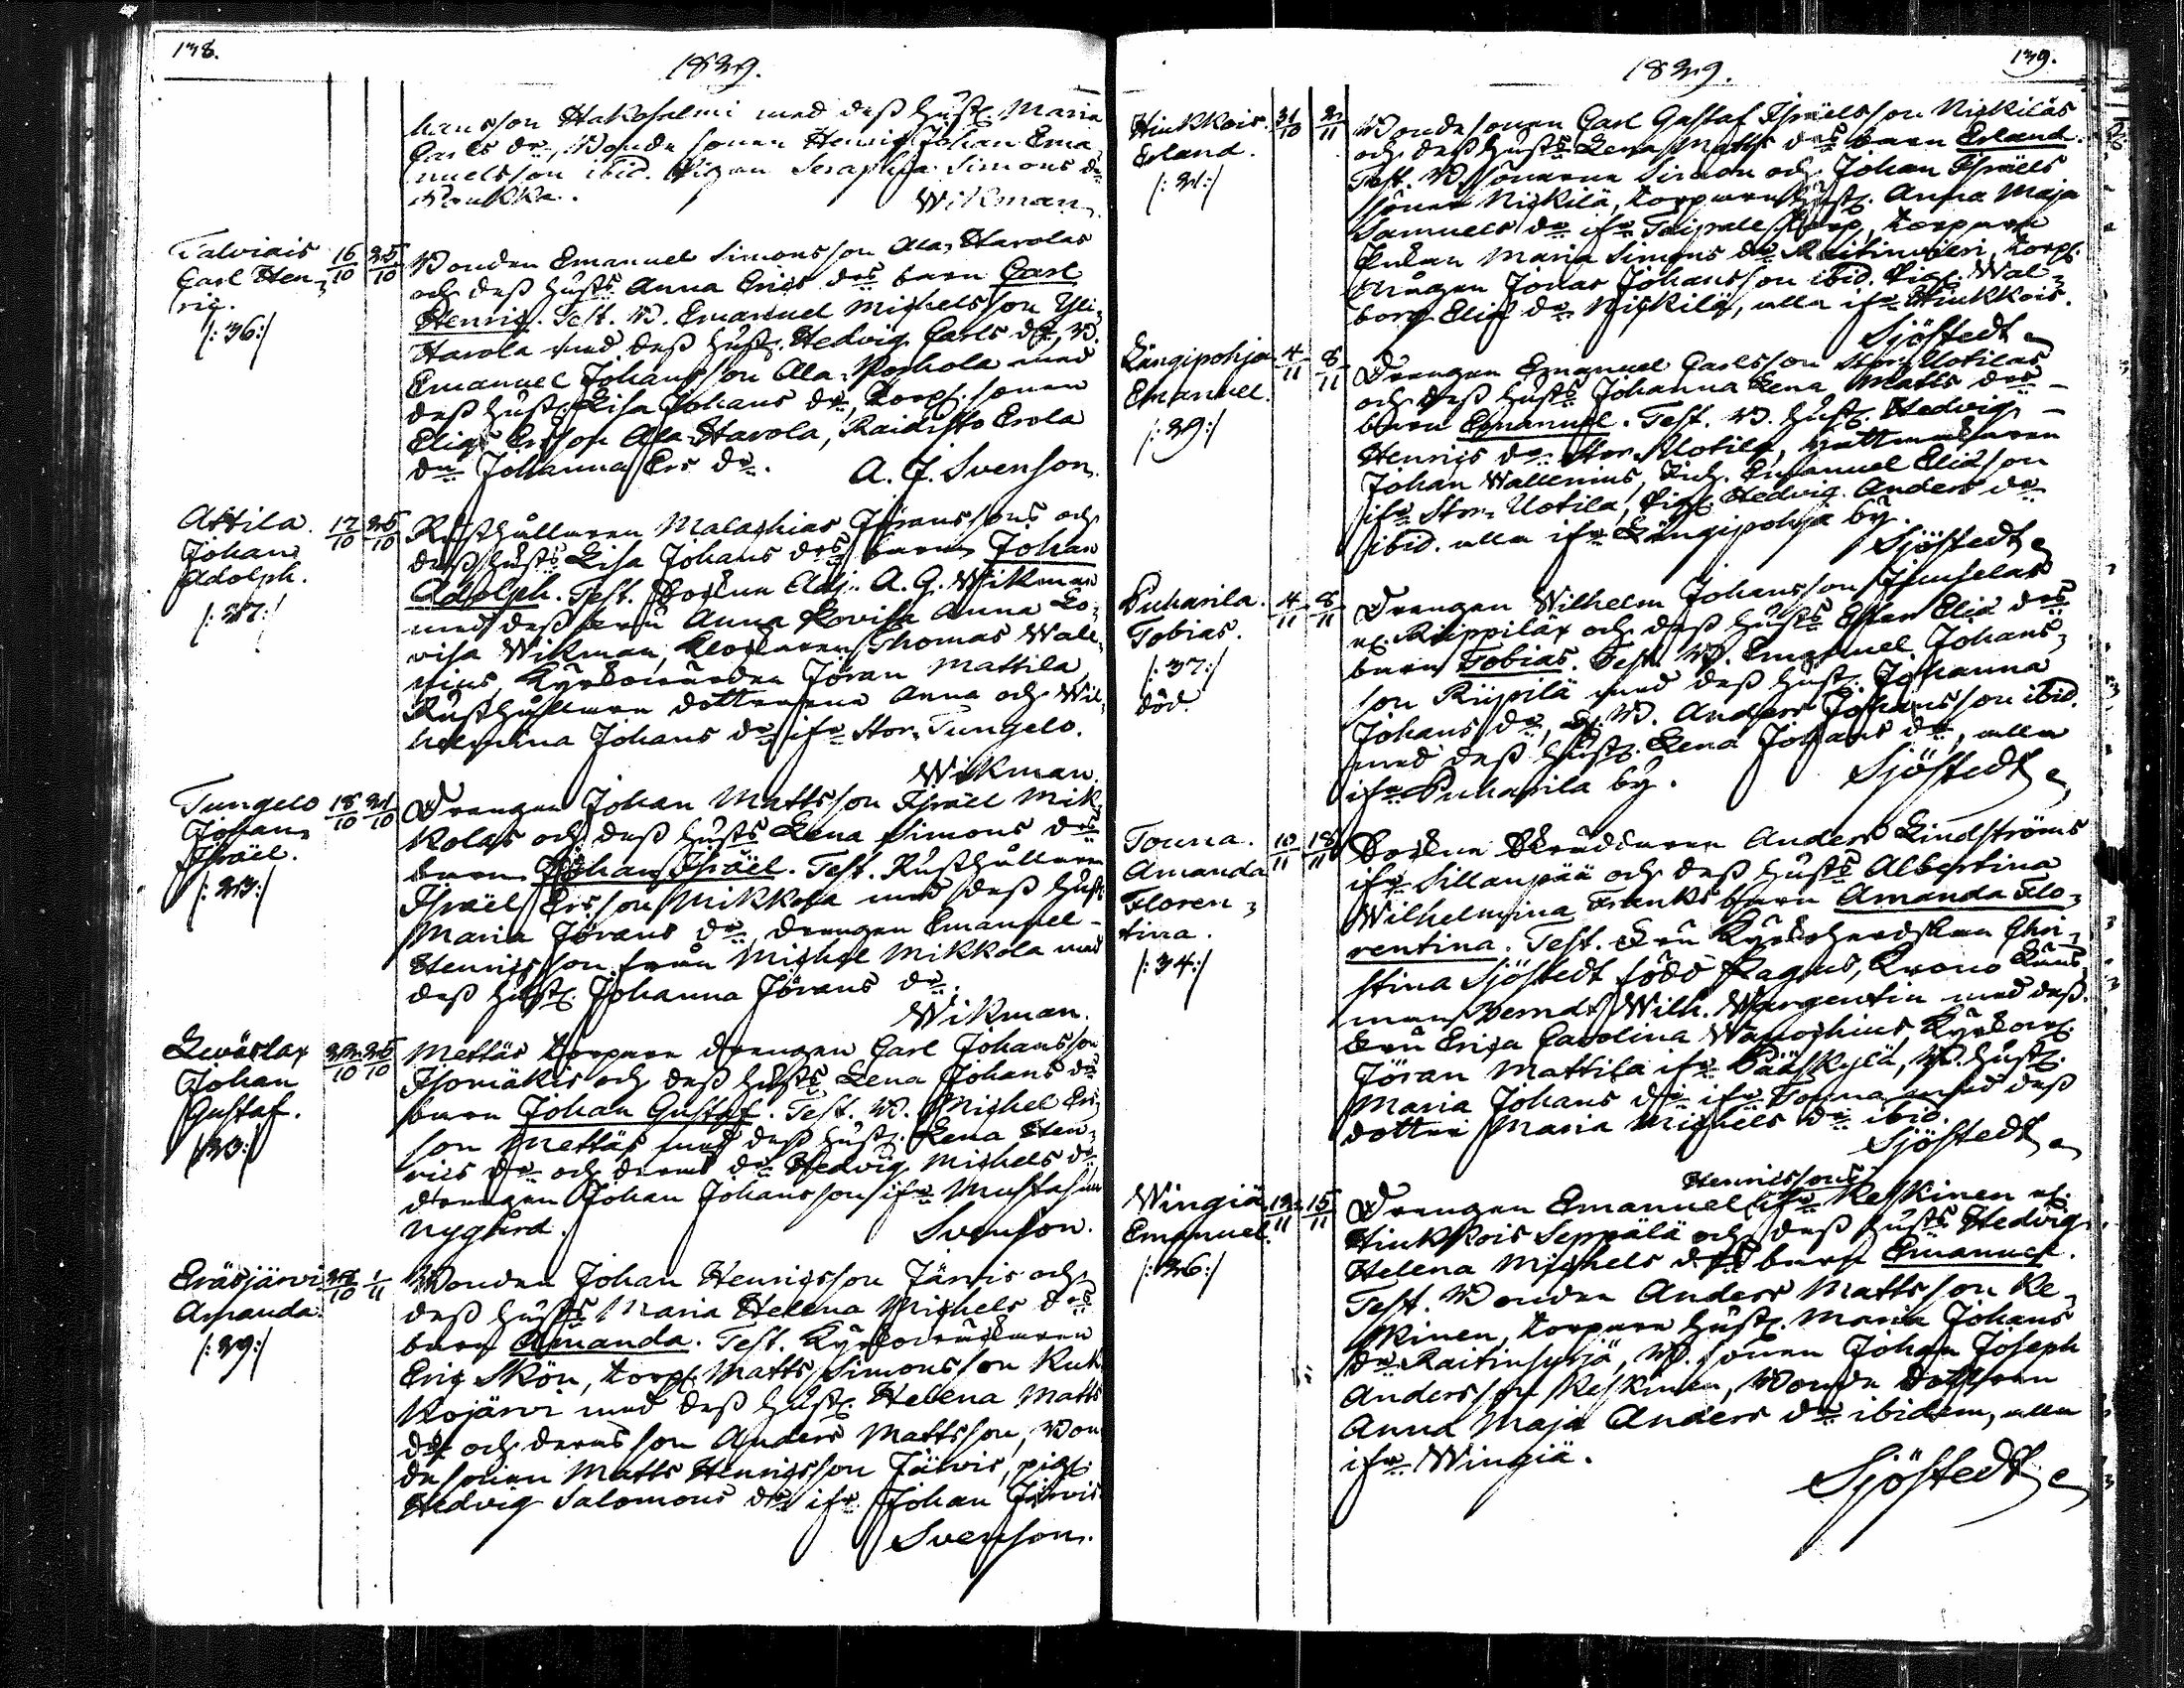 138.
1839.
hansson Hakosalmi med dess hust. Maria
Carls dr, Bonde sonen Henric Johan Ema-
nuelsson ibid. Pigan Seraphia Simons dr
Wikman
Talviais
Carl Hen-
ric.
/:36:/
16/10 25/10
Bonden Emanuel Simonsson Ala-Harolas
och dess husts Anna Erics drs barn Carl
Henric. Test. B. Emanuel Michelsson Yli-
Harola med dess hust. Hedvig Carls dr, B.
Emanuel Johansson Ala-Pohola med
dess hust. Lisa Johans dr, Torp. sonen
Elias Ersson Ala-Harola, Erola
dr Johanna Ers dr.
A. J. Svenson.
Attila.
Johan
Adolph.
/:37:/
17/10 25/10
Rusthållaren Malachias Jöranssons och
dess husts Lisa Johans drs barn Johan
Adolph. Test. Socknens Adj. A. G. Wikman
med dess fru Anna Lovisa Anna Lo-
visa Wikman, Klockaren Thomas Wale-
nius, Kyrkovärden Jöran Mattila,
Rusthållare döttrarna Anna och Wil-
helmina Johans dr ifr Stor-Tungelo.
Wikman.
Tungelo
Johan
Israël.
/:23:/
18/10 21/10
Drengen Johan Mattsson Israël Mik-
kolas och dess husts Lena Simons drs
barn Johan Israël. Test. Rusthållaren
Israël Ersson Mikkola med dess hust.
Maria Jörans dr, drengen Emanuel
Henricsson från Michel Mikkola med
dess hust. Johanna Jörans dr.
Wikman.
Leväslax
Johan
Gustaf.
/:30:/
22/10 25/10
Mettäs torpare drengen Carl Johansson
Isomäkis och dess husts Lena Johans drs
barn Johan Gustaf. Test. B. Michel Ers-
son Mettäs med dess hust. Lena Hen-
rics dr och deras dr Hedvig Michels dr
drengen Johan Johansson ifr
Nygård.
Svenson.
Eräsjärvi
Amanda.
/:29:/
27/10 1/11
Bonden Johan Henricsson Järvis och
dess husts Maria Helena Michels drs
barn Amanda. Test. Kyrkoväktaren
Eric Skön, torp. Matts Simonsson Kuk-
kojärvi med dess hust. Helena Matts
dr och deras son Anders Mattsson, Bon-
de sonen Matts Henricsson Järvis, pig.
Hedvig Salomons dr ifr Johan Järvis
Svenson.
139.
1839.
Hinkkois.
Erland.
/:21:/
31/10 2/11
Bondesonen Carl Gustaf Israëlsson Niskiläs
och dess husts Lena Matts drs barn Erland.
Test. B. sönerne Simon och Johan Israëls
söner Niskilä, torparens hust. Anna Maja
Samuels dr ifr Taipale torp, torpare
Enkan Maria Simons dr, torp.
drängen Jonas Johansson ibid. Pig. Wal-
borg Elias dr Niskilä, alla ifr Hinkkois.
Sjöstedt
Längipohja
Emanuel.
/:29:/
4/11 8/11
Drengen Emanuel Carlsson Stor-Uotilas
och dess husts Johanna Lena Matts drs
barn Emanuel. Test. B. hust. Hedvig
Henrics dr Stor-Uotila, hattmakaren
Johan Wallenius, Emanuel Eliasson
ifr Stor-Uotila, Pig. Hedvig Anders dr
ibid. alla ifr Längipohja by.
Sjöstedt
Puharila.
Tobias.
/:37:/
död.
4/11 8/11
Drengen Wilhelm Johansson Junselas
el. Riippiläs och dess husts Ester Elias drs
barn Tobias. Test. B. Emanuel Johans-
son Riipilä med dess hust. Johanna
Johans dr, B. Anders Johansson ibid.
med dess hust. Lena Johans dr, alla
ifr Puharila by.
Sjöstedt
Touna.
Amanda
Floren-
tina.
/:34:/
10/11 18/11
Sockne Skräddaren Anders Lindströms
ifr Sillanpää och dess husts Albertina
Wilhelmina Franks barn Amanda Flo-
rentina. Test. Fru Kyrkoherdskan Chri-
stina Sjöstedt född Pagus, Krono Läns
man Berndt Wilh. Wargentin med dess
Fru Erica Carolina, Kyrkov.
Jöran Mattila ifr Pääskylä, B. hust.
Maria Johans dr ifr Touna med dess
dotter Maria Michels dr ibid.
Sjöstedt
Wingiä
Emanuel.
/:26:/
12/11 15/11
Henricssons
Drengen Emanuel ifr Keskinen el.
Hinkkois Seppälä och dess husts Hedvig
Helena Michels drs barn Emanuel.
Test. Bonden Anders Mattsson Ke-
skinen, torpare hust. Maria Johans
dr Raitinharjä, B. sonen Johan Joseph
Andersson Keskinen, Bonde dottern
Anna Maja Anders dr ibidem, alla
ifr Wingiä.
Sjöstedt